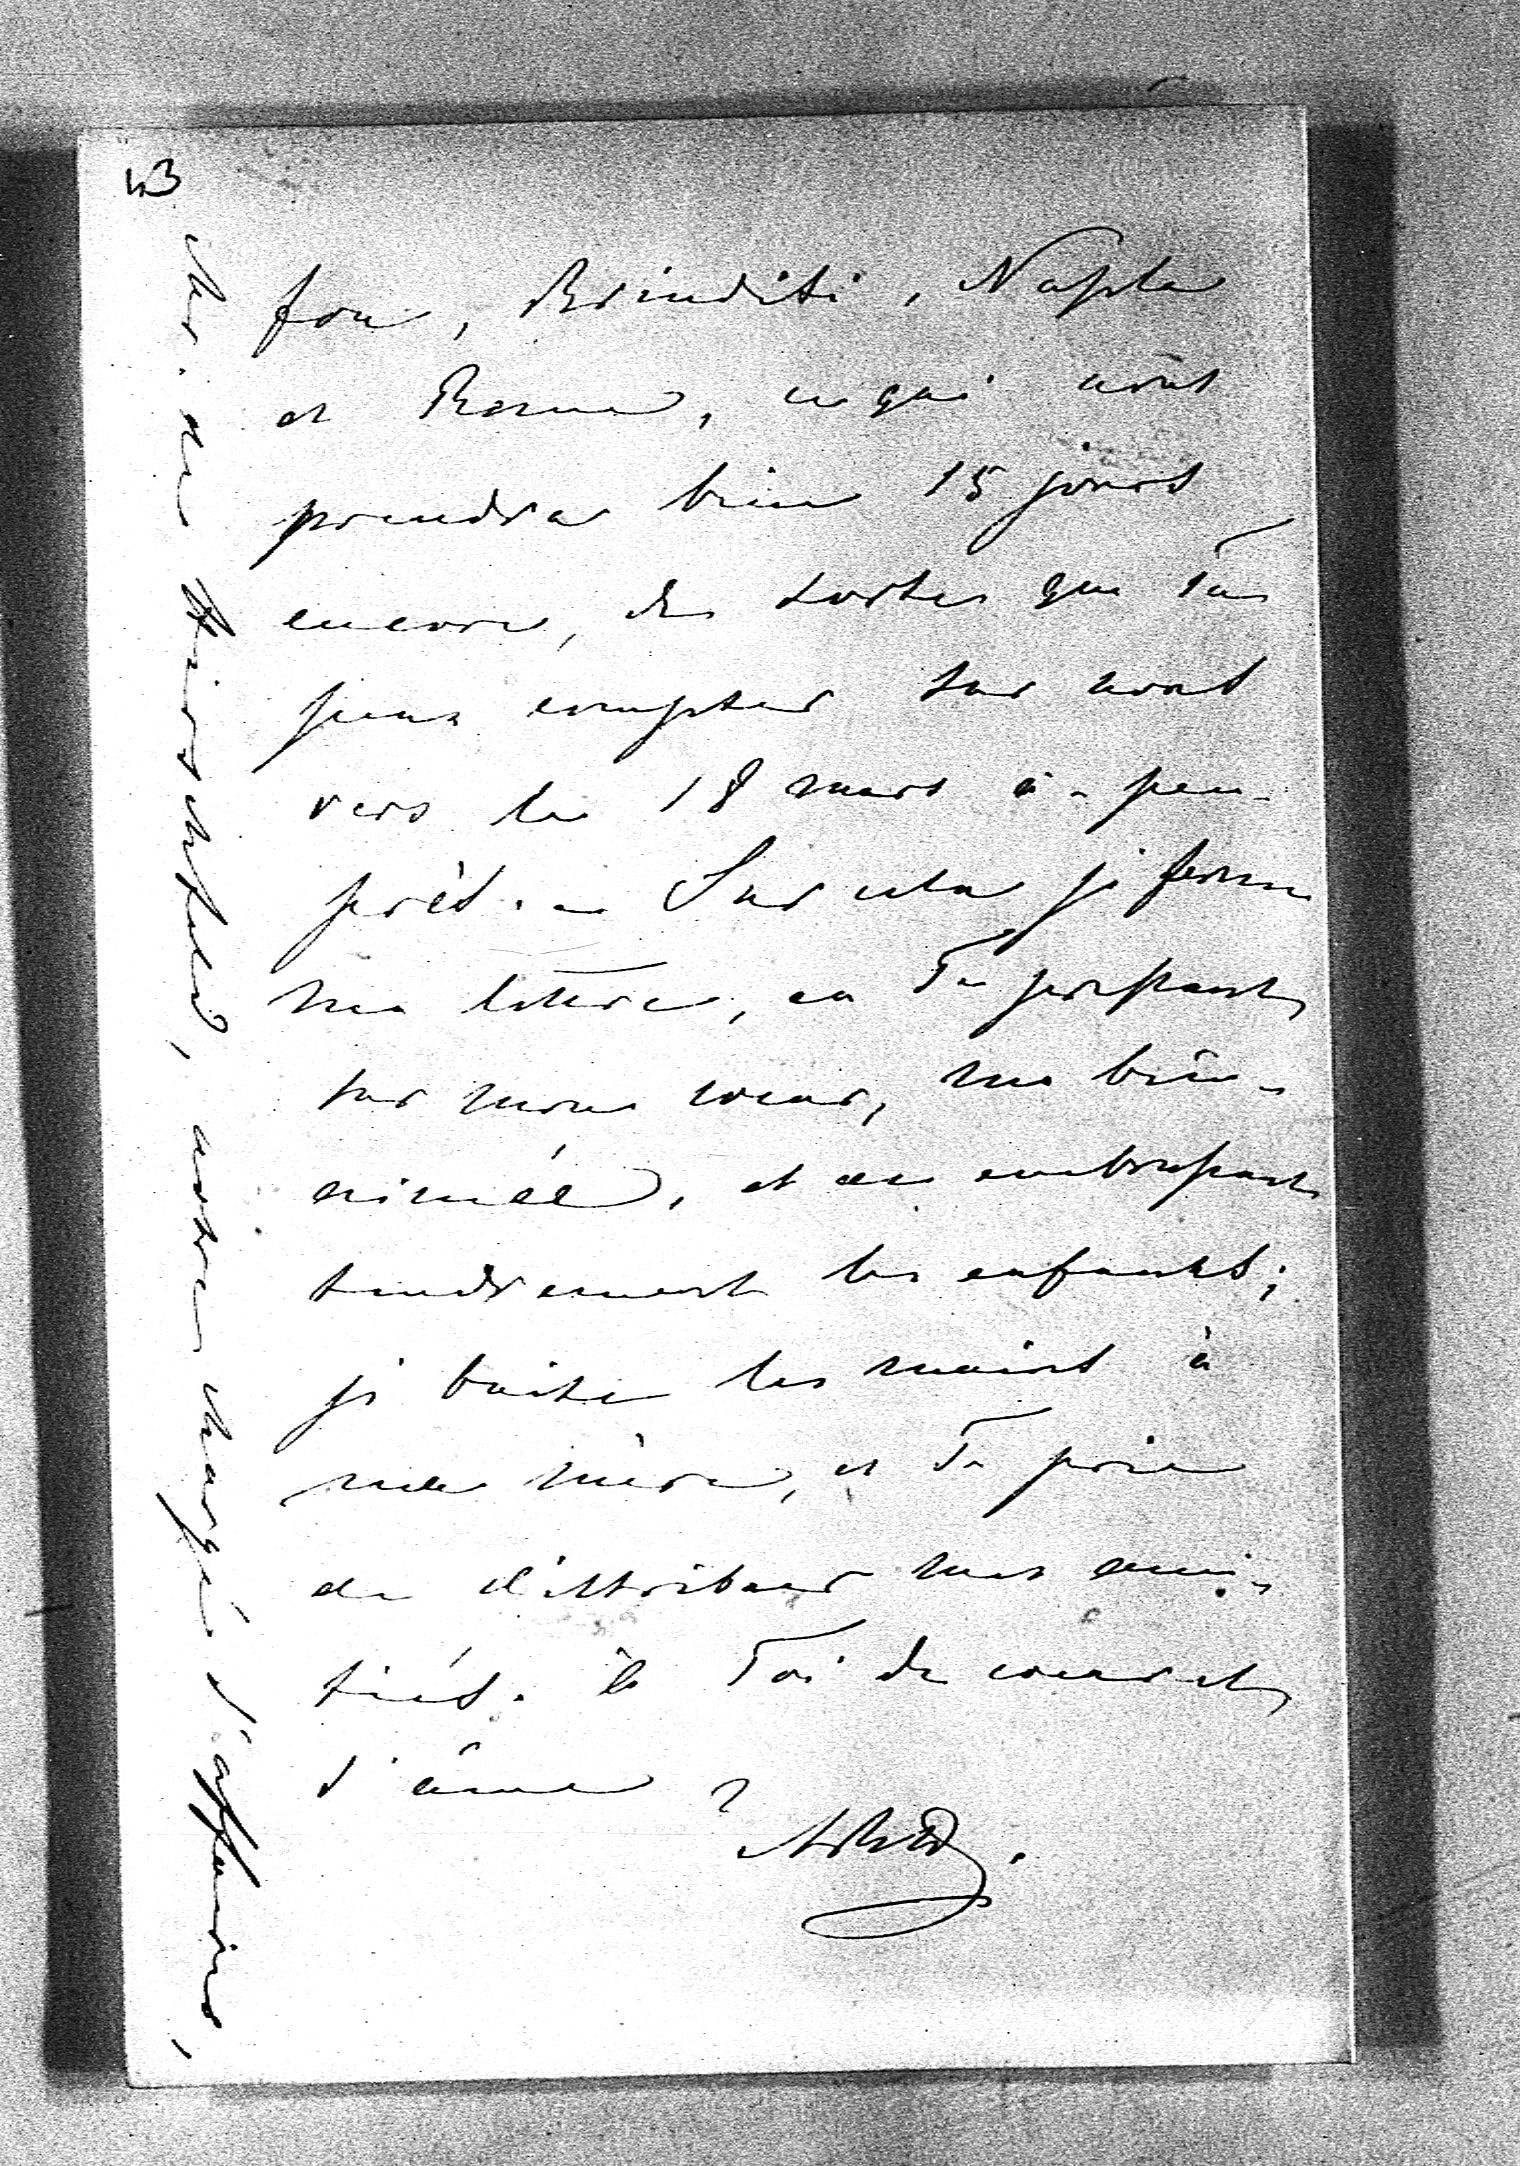 43
fou, Brindisi, Naples
et Rome, ce qui nous
prendra bien 15 jours
encore, de sorte que Tu
peux compter sur nous
vers le 18 mars à-peu-
près. – Sur cela je ferme
ma lettre, en Te pressant
sur mon coeur, ma bien-
aimée, et en embrassant
tendrement les enfants;
je baise les mains à
ma mère, et Te prie
de distribuer mes ami-
tiés. à Toi de coeur et
d'âme
Mr. de Hirschfeld, notre chargé d'affaires,